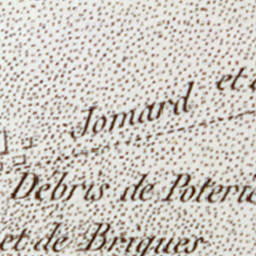 Jomard et
Débris de Poterie
et de Briques